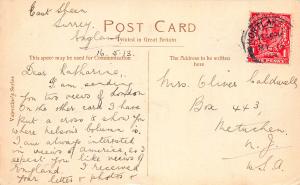 East Sheen
Surrey.
England
16.5.13.
POST CARD
Printed in Great Britain
This space may be used for Communication
The Address
Valentine's Series
Dear Katharine,
I am sending
you two views of London
On the other card I have
put a cross to show you
where Nelson's Column is.
I am always interested
in views of America, so I
expect you like views of
England. I received
your letter & photos &
Mrs. Oliver Caldwell
Box 443
Metuchen
N. J.
U.S.A
ONE PENNY